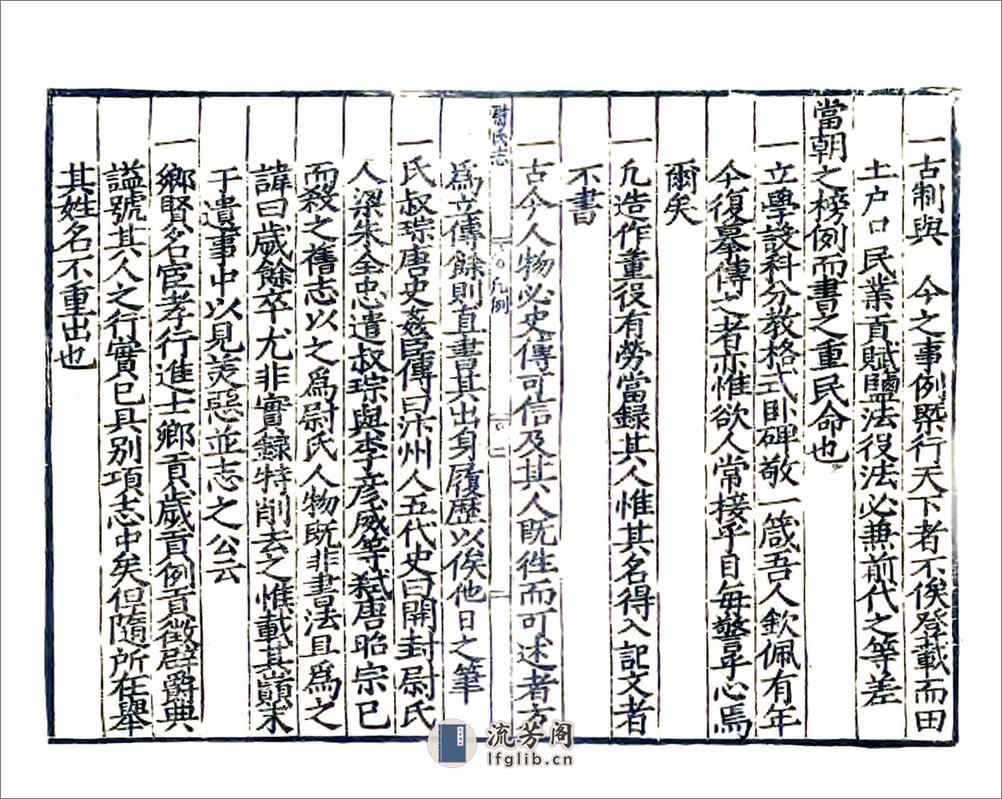 一古制與　今之事例槩行天下者不俟登載而田
土户口民業貢賦鹽法役法必兼前代之等差
當朝之榜例而書之重民命也
一立學設科分教格式卧碑敬一箴吾人欽佩有年
今復摹傳之者亦惟欲人常接乎目每警乎心焉
爾矣
一凡造作董役有勞當録其人惟其名得入記文者
不書
一古今人物必史傳可信及其人既徃而可述者方
尉氏志　凡例　二
爲立傳餘則直書其出身履歷以俟他日之筆
一氏叔琮唐史姦臣傳曰汴州人五代史曰開封尉氏
人梁朱全忠遣叔琮與李彦威等弑唐昭宗已
而殺之舊志以之爲尉氏人物既非書法且爲之
諱曰歲餘卒尤非實録特削去之惟載其顛末
于遺事中以見美惡並志之公云
一鄉賢名臣孝行進士鄉貢歲貢例貢徵辟爵典
謚號其人之行實已具别項志中矣但隨所在舉
其姓名不重出也
流芳阁
lfglib.cn